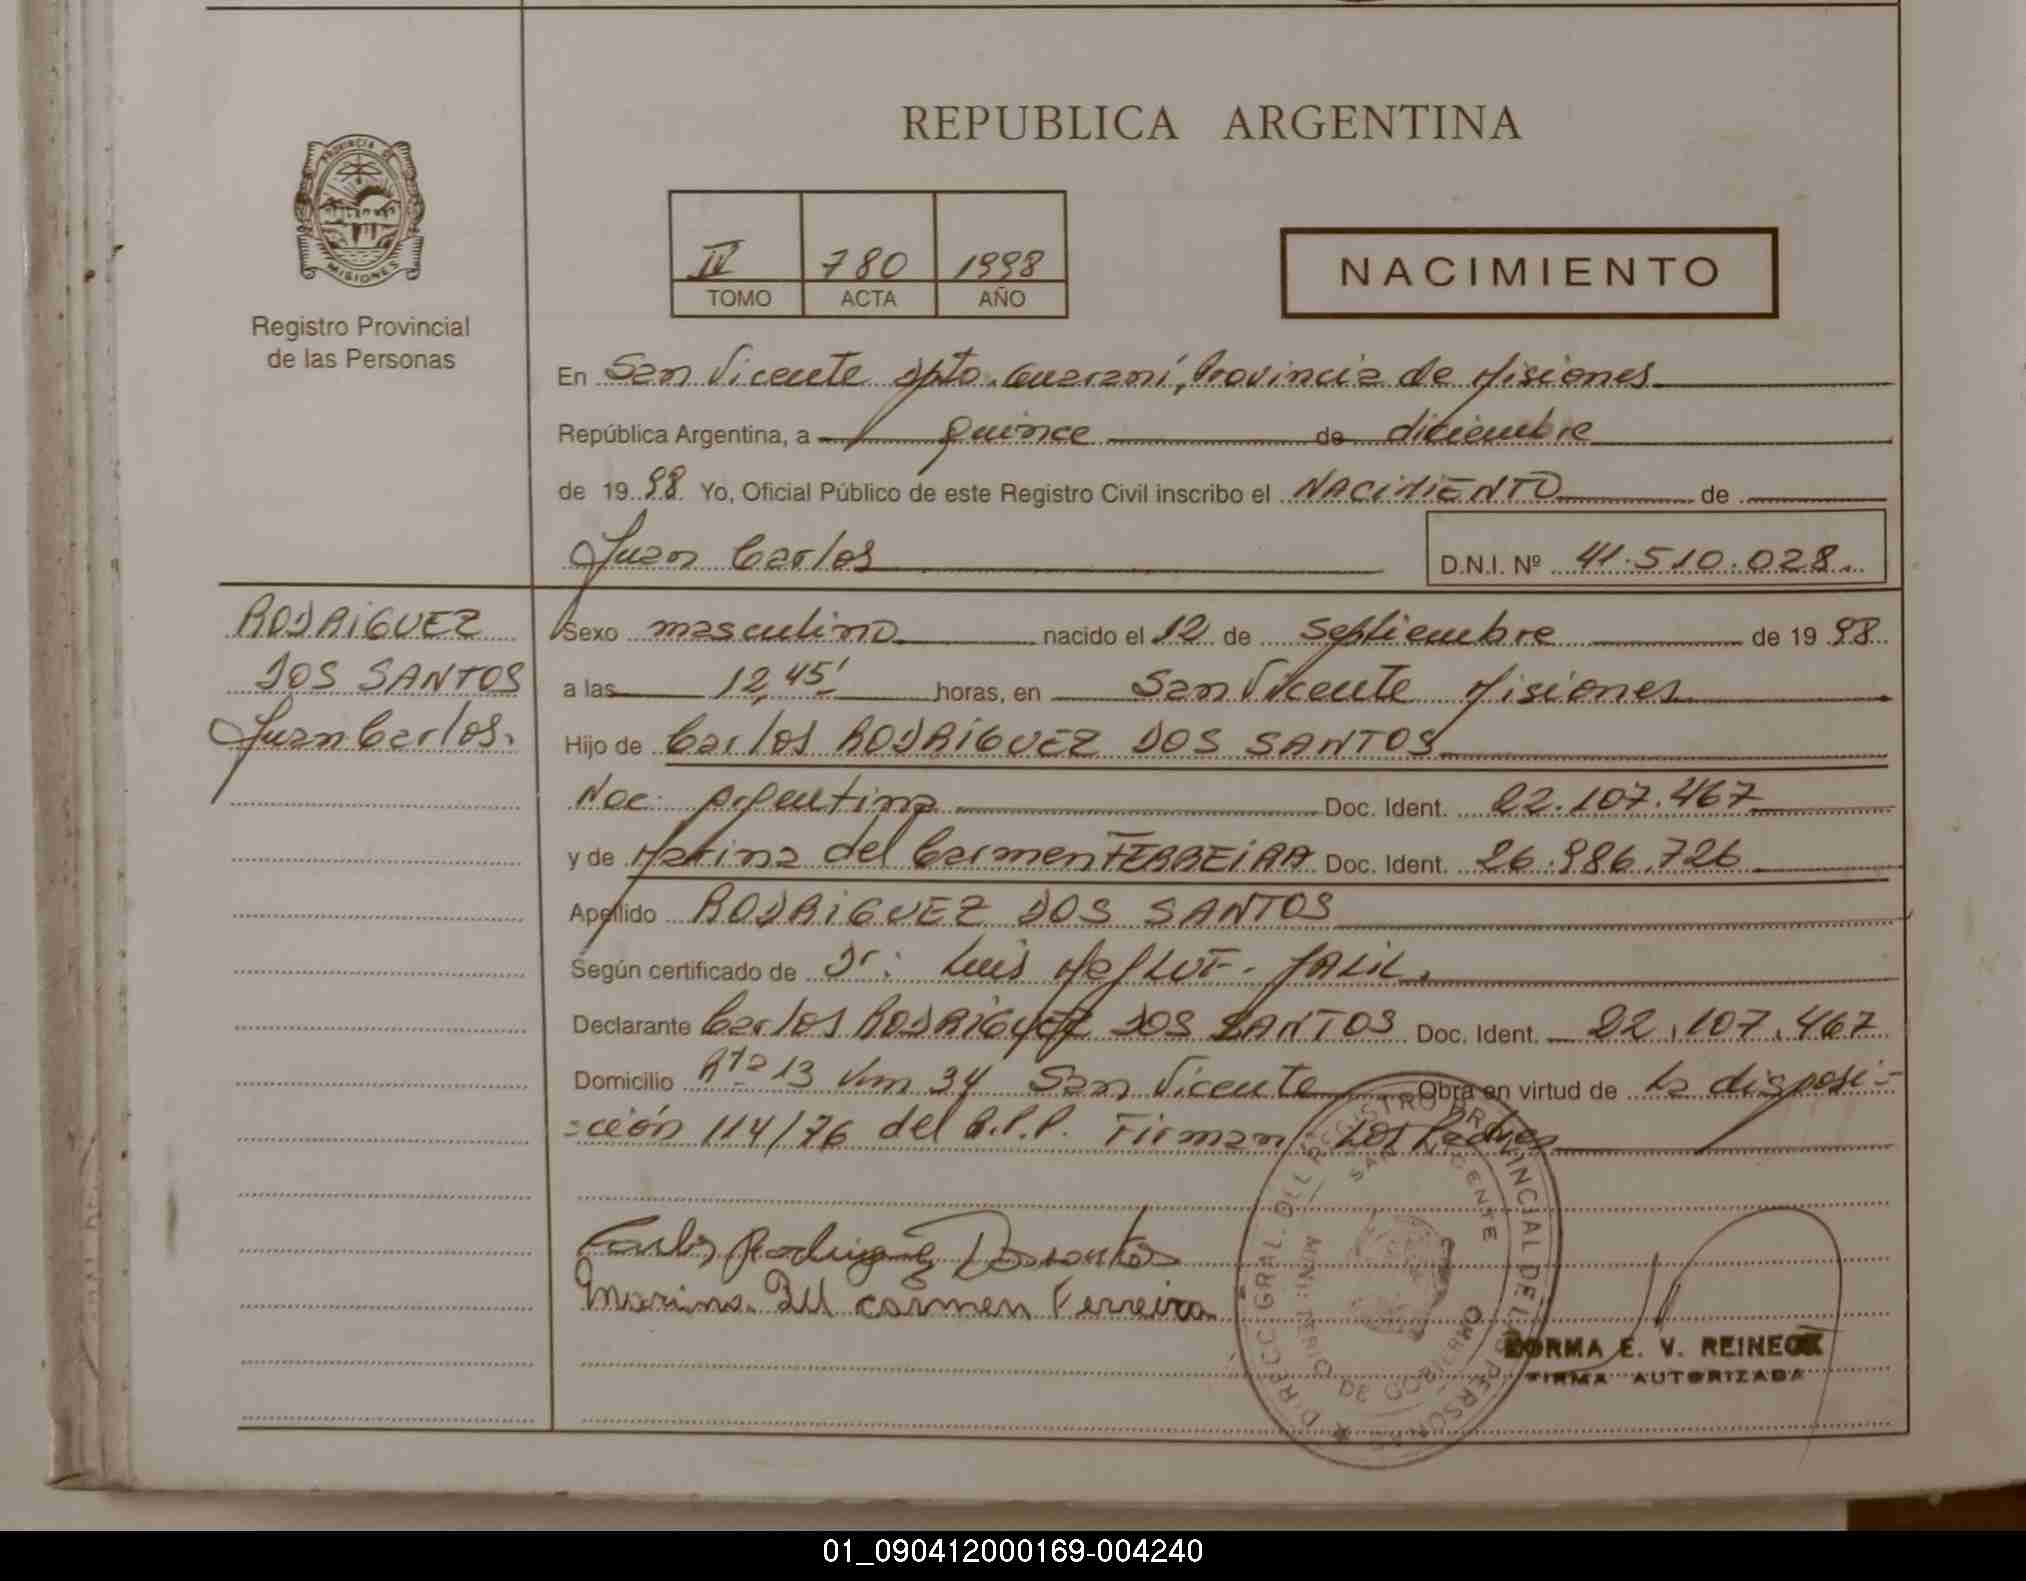 REPUBLICA ARGENTINA
PROVINCIA DE
MISIONES
Registro Provincial
de las Personas
IV 780 1998
TOMO ACTA AÑO
NACIMIENTO
En San Vicente Dpto. Guaraní, Provincia de Misiones
República Argentina, a quince de diciembre
de 1998 Yo, Oficial Público de este Registro Civil inscribo el NACIMIENTO de
Juan Carlos D.N.I. Nº 41.510.028.
RODRIGUEZ
DOS SANTOS
Juan Carlos.
Sexo masculino nacido el 12 de septiembre de 1998
a las 12,45' horas, en San Vicente Misiones
Hijo de Carlos RODRIGUEZ DOS SANTOS
Nac. Argentina Doc. Ident. 22.107.467
y de Marina del Carmen FERREIRA Doc. Ident. 26.986.726
Apellido RODRIGUEZ DOS SANTOS
Según certificado de Dr: Luis JALIL.
Declarante Carlos RODRIGUEZ DOS SANTOS Doc. Ident. 22.107.467
Domicilio Rta 13 km 34 San Vicente Obra en virtud de la disposi-
-ción 114/76 del R.P.P. Firman Los Padres
Carlos Rodriguez Dossantos
Marina Del carmen Ferreira
DIRECC. GRAL. DEL REGISTRO PROVINCIAL DE LAS PERSONAS
SAN VICENTE
MINISTERIO DE GOBIERNO
NORMA E. V. REINECK
FIRMA AUTORIZADA
01_090412000169-004240